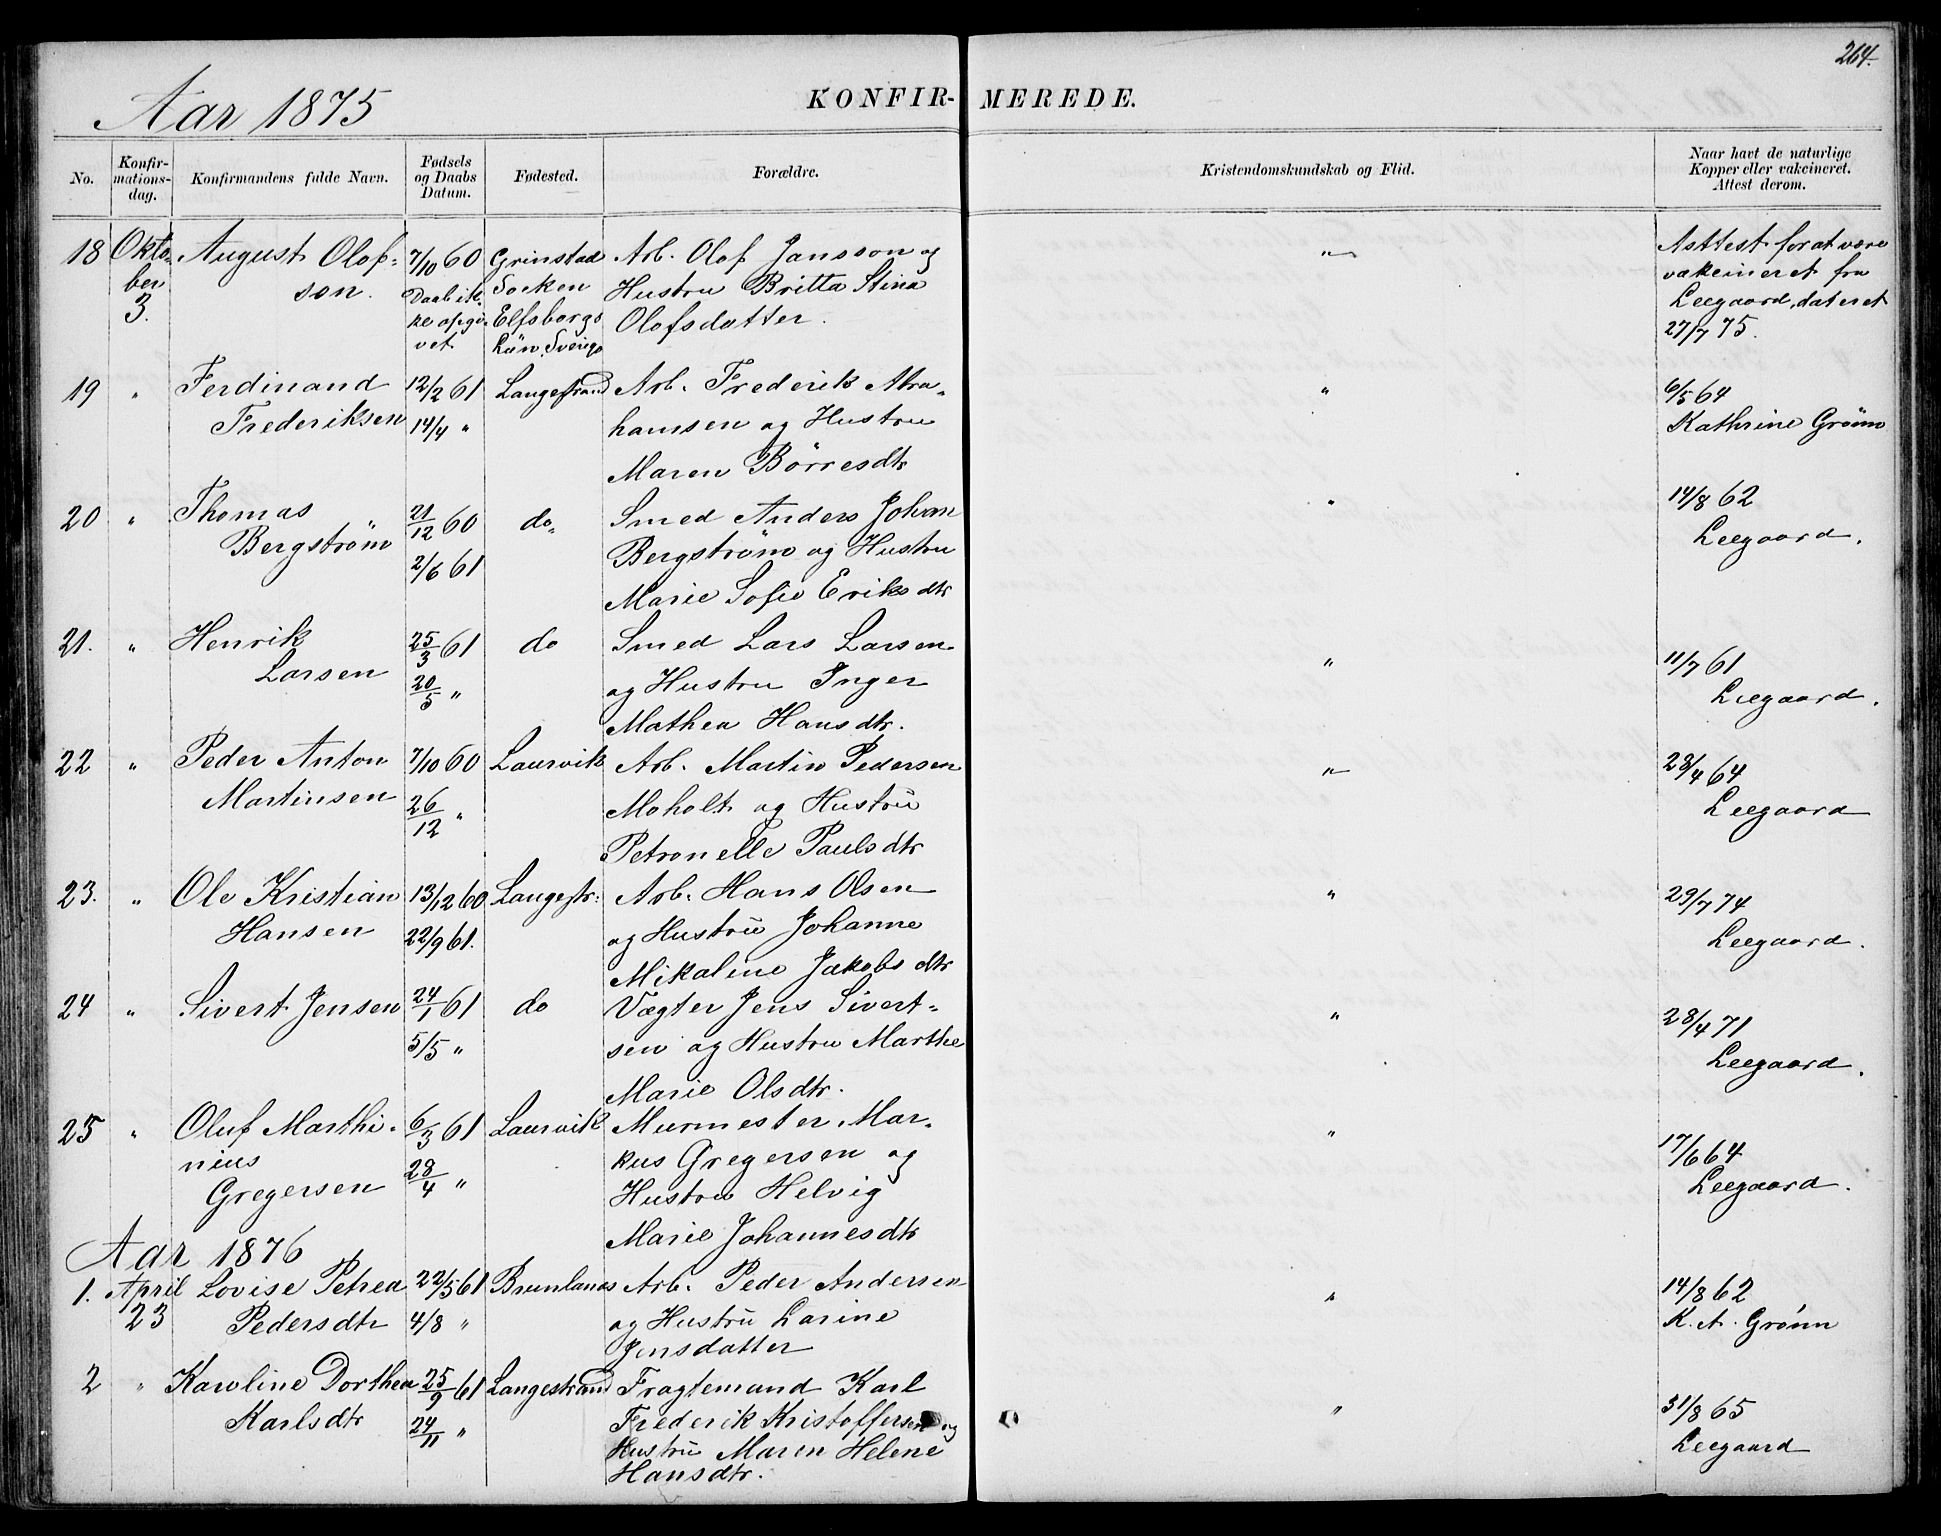 264.
Aar 1875
KONFIR- MEREDE.
No. Konfir-mations-dag. Konfirmandens fulde Navn. Fødsels og Daabs Datum. Fødested. Forældre. Kristendomskundskab og Flid. Naar havt de naturlige Kopper eller vakcineret. Attest derom.
18 Okto- August Olof- 7/10 60 Grinstad Arb. Olof Jansson og " Asttest for at være
ber son. Daab ik- Socken Hustru Britta Stina vakcineret fra
3. ke opgi- Elfsborgs Olofsdatter. Leegaard, dateret
vet Län, Sverige 27/7 75.
19 " Ferdinand 12/2 61 Langestrand Arb. Frederik Abra- " 6/5 64
Frederiksen 14/4 " hamsen og Hustru Kathrine Grønn
Maren Börresdtr
20 " Thomas 21/12 60 do" Smed Anders Johan " 14/8 62
Bergström 2/6 61 Bergström og Hustru Leegaard.
Marie Sofie Eriksdtr
21. " Henrik 25/3 61 do Smed Lars Larsen " 11/7 61
Larsen 20/5 " og Hustru Inger Leegaard.
Mathea Hansdtr.
22 " Peder Anton 7/10 60 Laurvik Arb. Martin Pedersen " 28/4 64
Martinsen 26/12 " Moholt og Hustru Leegaard
Petronelle Paulsdtr
23. " Ole Kristian 13/12 60 Langestr: Arb. Hans Olsen " 29/7 74
Hansen 22/9 61. og Hustru Johanne Leegaard.
Mikaline Jakobsdtr
24 " Sivert Jensen 24/1 61 do Vægter Jens Sivert- " 28/4 71
5/5 " sen og Hustru Marthe Leegaard.
Marie Olsdtr.
25 " Oluf Marthi- 6/3 61 Laurvik Murmester Mar- " 17/6 64
nius 28/4 " kus Gregersen og Leegaard.
Gregersen Hustru Helvig
Marie Johannesdtr
Aar 1876
1. April Lovise Petrea 22/5 61 Brunlanes Arb. Peder Andersen " 14/8 62
23 Pedersdtr 4/8 " og Hustru Larine K. A. Grønn
Jensdatter
2 " Karoline Dorthea 25/9 61 Langestrand Fragtemand Karl " 31/8 65
Karlsdtr 24/11 " Frederik Kristoffersen og Leegaard
Hustru Maren Helene
Hansdtr.